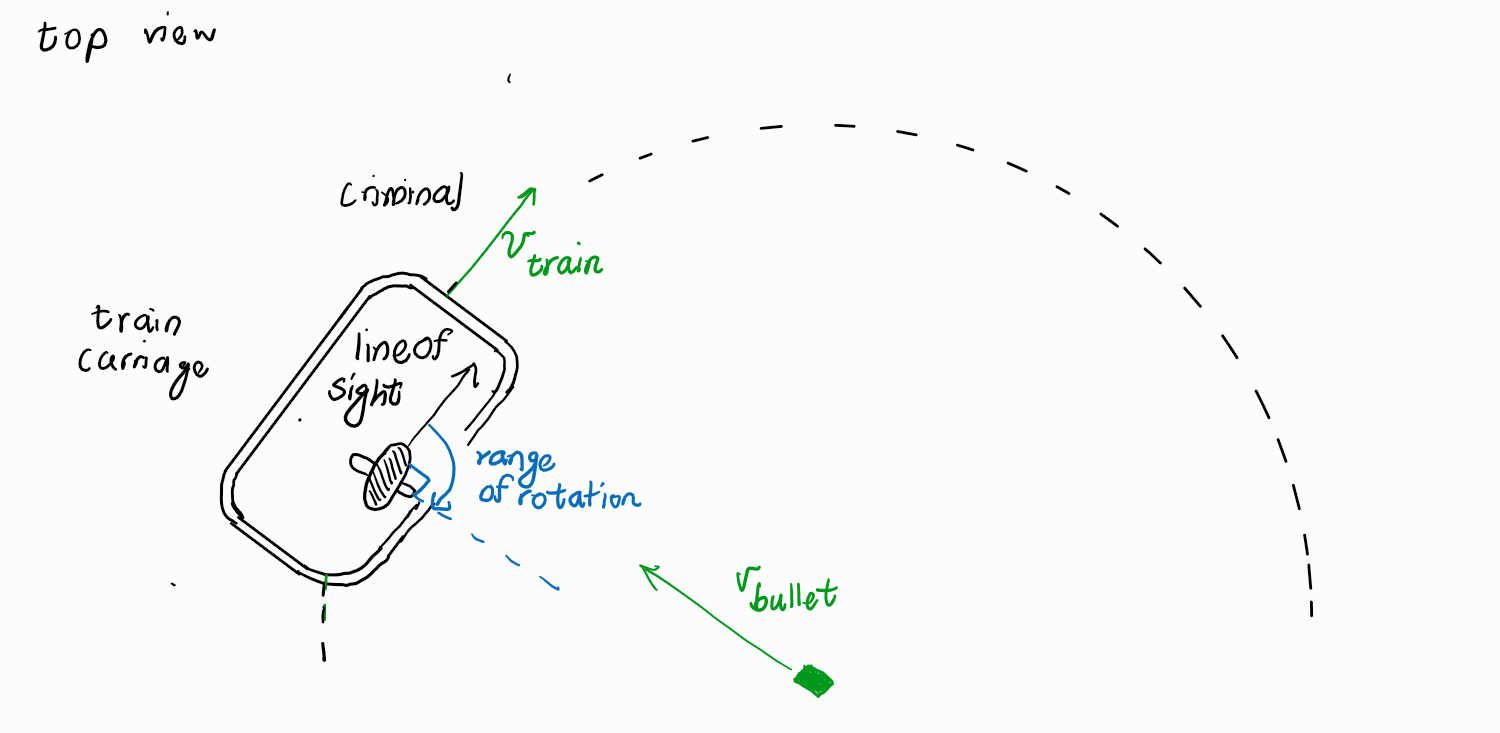 top view
criminal
v train
train
carriage
line of
sight
range
of rotation
v bullet